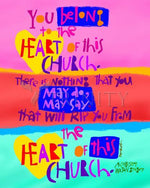 YOU BELONG
to the
HEART of this
CHURCH.
There is NOTHING that YOU
MAY do,
MAY SAY
that will RIP YOU FROM
the
HEART of this
CHURCH.